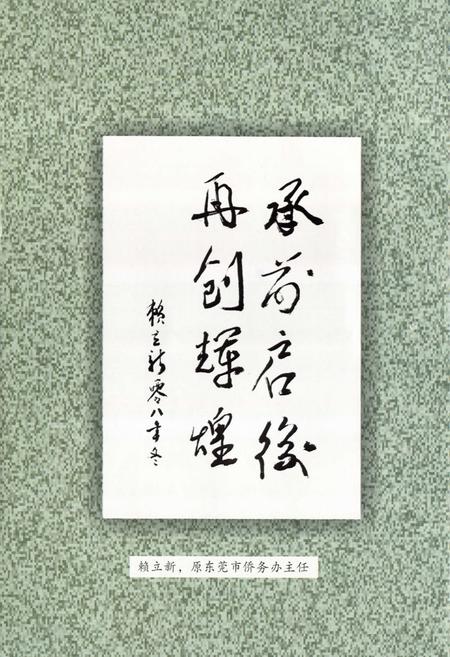 承前启後
再创辉煌
赖立新零八年冬
赖立新，原东莞市侨务办主任